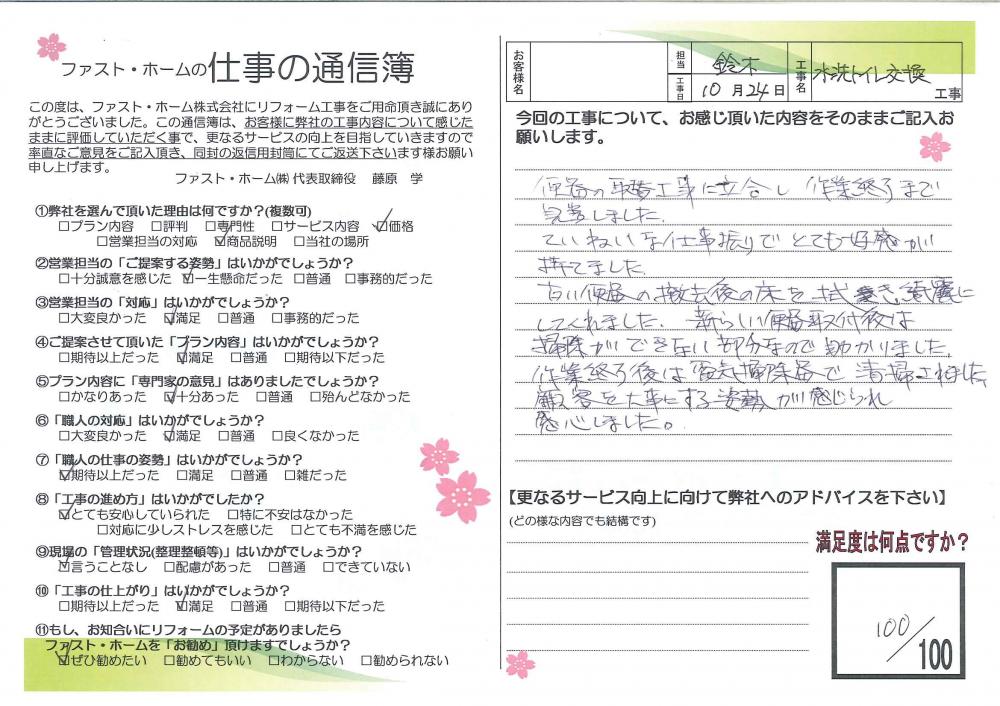 ファスト・ホームの仕事の通信簿
この度は、ファスト・ホーム株式会社にリフォーム工事をご用命頂き誠にあり
がとうございました。この通信簿は、お客様に弊社の工事内容について感じた
ままに評価していただく事で、更なるサービスの向上を目指していきますので
率直なご意見をご記入頂き、同封の返信用封筒にてご返送下さいます様お願い
申し上げます。
ファスト・ホーム㈱ 代表取締役 藤原 学
①弊社を選んで頂いた理由は何ですか？(複数可)
□プラン内容 □評判 □専門性 □サービス内容 ☑価格
□営業担当の対応 ☑商品説明 □当社の場所
②営業担当の「ご提案する姿勢」はいかがでしょうか？
□十分誠意を感じた ☑一生懸命だった □普通 □事務的だった
③営業担当の「対応」はいかがでしょうか？
□大変良かった ☑満足 □普通 □事務的だった
④ご提案させて頂いた「プラン内容」はいかがでしょうか？
□期待以上だった ☑満足 □普通 □期待以下だった
⑤プラン内容に「専門家の意見」はありましたでしょうか？
□かなりあった ☑十分あった □普通 □殆んどなかった
⑥「職人の対応」はいかがでしょうか？
□大変良かった ☑満足 □普通 □良くなかった
⑦「職人の仕事の姿勢」はいかがでしょうか？
☑期待以上だった □満足 □普通 □雑だった
⑧「工事の進め方」はいかがでしたか？
☑とても安心していられた □特に不安はなかった
□対応に少しストレスを感じた □とても不満を感じた
⑨現場の「管理状況(整理整頓等)」はいかがでしょうか？
☑言うことなし □配慮があった □普通 □できていない
⑩「工事の仕上がり」はいかがでしょうか？
□期待以上だった ☑満足 □普通 □期待以下だった
⑪もし、お知合いにリフォームの予定がありましたら
ファスト・ホームを「お勧め」頂けますでしょうか？
☑ぜひ勧めたい □勧めてもいい □わからない □勧められない
お客様名
担当 鈴木
工事日 10月24日
工事名 水洗トイレ交換 工事
今回の工事について、お感じ頂いた内容をそのままご記入お
願いします。
便器の取替工事に立合し 作業終了まで
見学しました。
ていねいな仕事振りでとても好感が
持てました
古い便器の撤去後の床を拭き綺麗に
してくれました。新らしい便器取付後は
掃除ができない部分なので助かりました。
作業終了後は電気掃除器で清掃されました
顧客を大事にする姿勢が感じられ
感心しました。
【更なるサービス向上に向けて弊社へのアドバイスを下さい】
(どの様な内容でも結構です)
満足度は何点ですか？
100/100